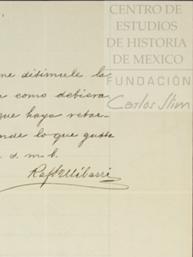 CENTRO DE
ESTUDIOS
DE HISTORIA
DE MEXICO
FUNDACIÓN
Carlos Slim
me disimule la
como debiera
que haya retar
lo que guste